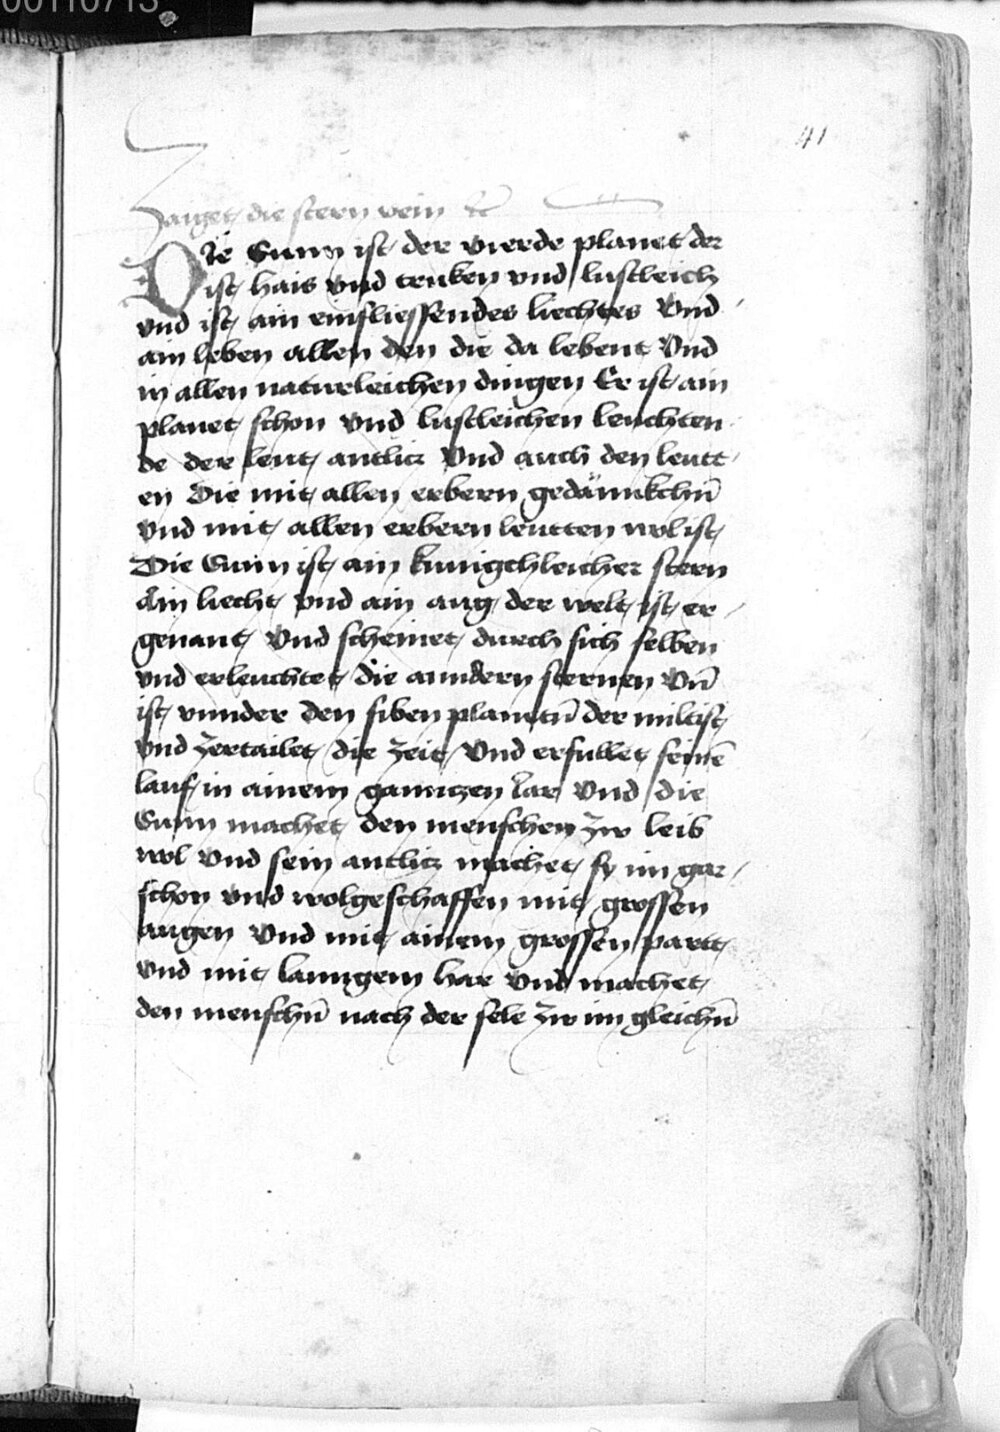 00110713
41
Zaiget die stern vein etc
Die Sunn ist der vierde planet der
ist hais vnd truken vnd lustleich
vnd ist ain einfliessendes liechtes Vnd
ain leben allen den die da lebent Vnd
in allen naturleichen dingen Er ist ain
planet schon vnd lustleichen leuchten
de der leut antlicz Vnd auch den leutt
en Die mit allen erbern gedännkchn̄
vnd mit allen erbern leutten wol ist
Die Sunn ist ain kunigchleicher stern
Ain liecht vnd ain aug der welt ist er
genant Vnd scheinet durch sich selben
vnd erleuchtet die anndern sternen Vn̄
ist vnnder den siben planetn̄ der miltist
vnd zertailet die zeit Vnd erfullet seinē
lauf in ainem ganntzen Iar Vnd die
Sunn machet den menschen zw leib
wol Vnd sein antlicz machet sy im gar
schon vnd wolgeschaffen mit grossen
augen Vnd mit ainem grossen partt
vnd mit lanngem har Vnd machet
den menschn̄ nach der sele zw im gleichn̄